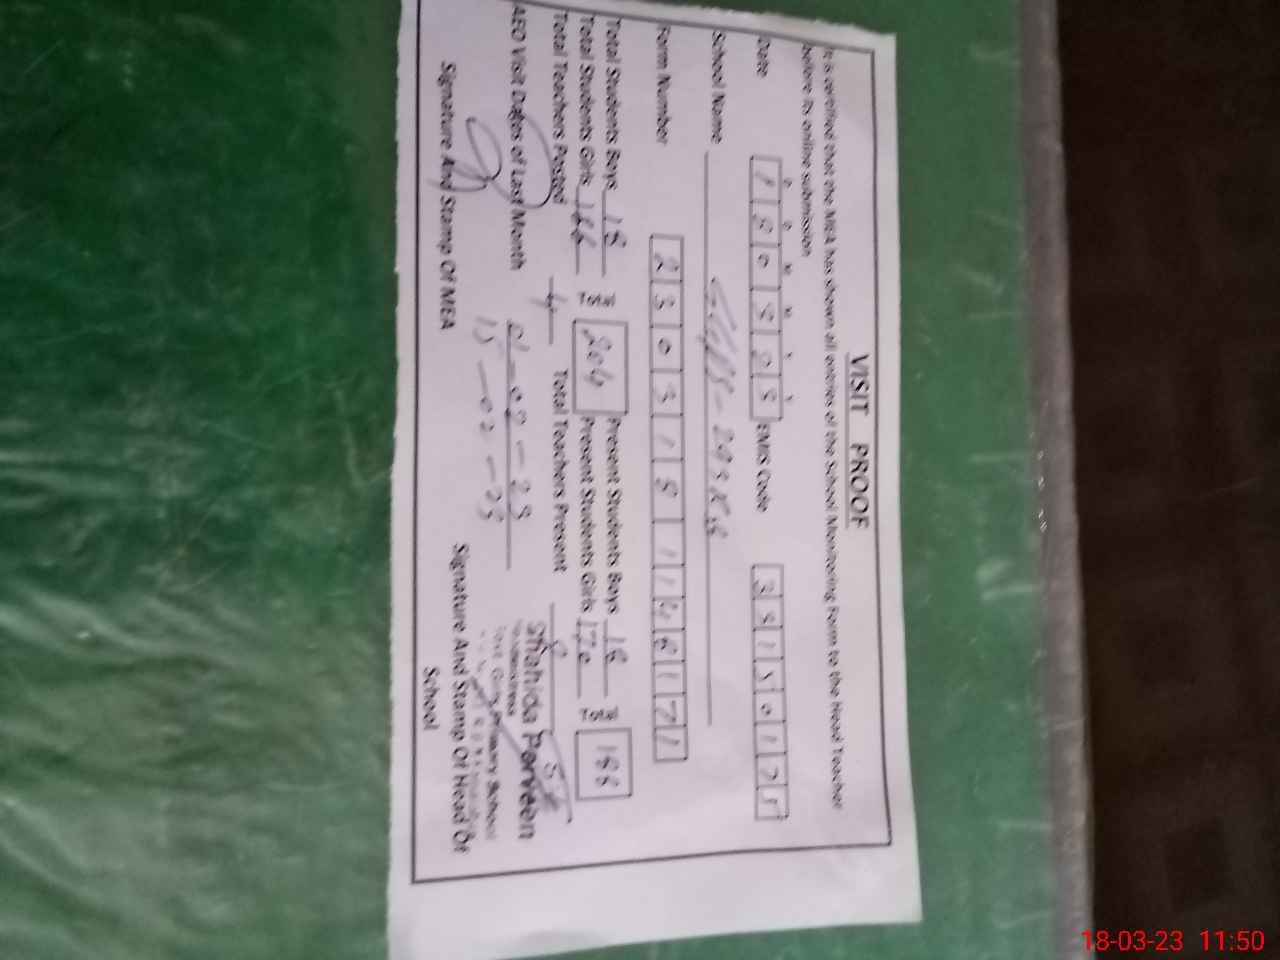 VISIT PROOF
It is certified that the MEA has shown all entries of the School Monitoring Form to the Head Teacher
before its online submission
D D M M Y Y
Date 180323 EMIS Code 33150175
School Name
Form Number 2303181146171
Total Students Boys 18 Present Students Boys 18
204 188
Total Students Girls 186 Present Students Girls 170
Total Teachers Posted 4 Total Teachers Present
AEO Visit Dates of Last Month 01-02-23
15-02-23
Shahida Perveen
Headmistress
Govt Girls Primary School
Signature And Stamp Of MEA
Signature And Stamp Of Head Of
School
18-03-23 11:50